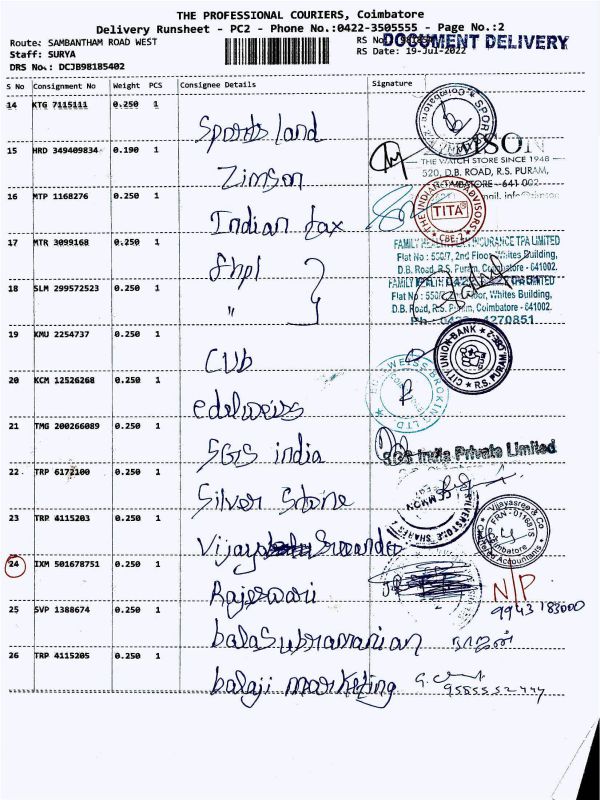 THE PROFESSIONAL COURIERS, Coimbatore
Delivery Runsheet - PC2 - Phone No.:0422-3505555 - Page No.:2
Route: SAMBANTHAM ROAD WEST
RS No
DOCUMENT DELIVERY
Staff: SURYA
RS Date: 19-Jul-2022
DRS No.: DCJB98185402
S No Consignment No Weight PCS Consignee Details Signature
14 KTG 7115111 0.250 1
Sports land
15 HRD 349409834 0.190 1
Zimson
THE WATCH STORE SINCE 1948
520, D.B. ROAD, R.S. PURAM,
COIMBATORE - 641 002
16 MTP 1168276 0.250 1
Indian tax
THE INDIAN TAX ADVISORS
TITA
CBE-2
17 MTR 3099168 0.250 1
fhpl
FAMILY HEALTH PLAN INSURANCE TPA LIMITED
Flat No : 550/7, 2nd Floor, Whites Building,
D.B. Road, R.S. Puram, Coimbatore - 641002.
18 SLM 299572523 0.250 1
"
Flat No : 550/7, 2nd Floor, Whites Building,
D.B. Road, R.S. Puram, Coimbatore - 641002.
Ph : 0422 - 4270851
19 KMU 2254737 0.250 1
CUb
CITY UNION BANK
R.S. PURAM, CBE-2
20 KCM 12526268 0.250 1
edelweiss
EDELWEISS BROKING LTD.
21 TMG 200266089 0.250 1
SGS india
SGS India Private Limited
22 TRP 6172100 0.250 1
Silver Stone
23 TRP 4115203 0.250 1
Vijaya
Vijayasree & Co
FRN - 011681S
Coimbatore
Chartered Accountants
24 IXM 501678751 0.250 1
Rajeswari
N/P
9943183000
25 SVP 1388674 0.250 1
balaSubramanian
26 TRP 4115205 0.250 1
balaji marketing